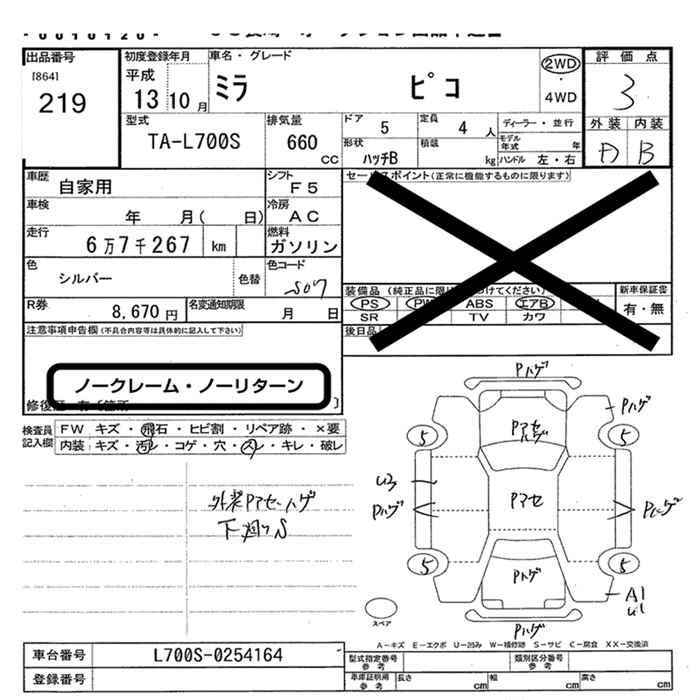 出品番号
[864]
219
初度登録年月
平成
13 10 月
車名・グレード
ミラ ピコ
2WD
4WD
評価点
3
外装 内装
B
型式
TA-L700S
排気量
660
cc
ドア
5
定員
4 人
ディーラー・並行
モデル年式 年
形状
ハッチB
積載
kg
ハンドル 左・右
車歴
自家用
シフト
F5
車検
年 月( 日)
冷房
AC
走行
6万7千267 km
燃料
ガソリン
色
シルバー
色替
色コード
S07
R券
8,670 円
名変通知期限
月 日
セールスポイント(正常に機能するものに限ります)
装備品
PS PW ABS エアB
SR TV カワ
新車保証書
有・無
後日品
注意事項申告欄(不具合内容等は具体的に記入して下さい)
ノークレーム・ノーリターン
修復歴
検査員記入欄
FW キズ・飛石・ヒビ割・リペア跡・×要
内装 キズ・汚レ・コゲ・穴・スレ・キレ・破レ
外装Pアセハゲ
下廻りS
Pハゲ
Pアセ
ハゲ
Pハゲ
5 5
Pハゲ
Pアセ
Pハゲ
5 5
Pハゲ
A1
Pハゲ
スペア
A-キズ E-エクボ U-凹み W-補修跡 S-サビ C-腐食 XX-交換済
車台番号
L700S-0254164
登録番号
型式指定番号
参考
類別区分番号
参考
車庫証明用
参考
長さ cm
幅 cm
高さ cm